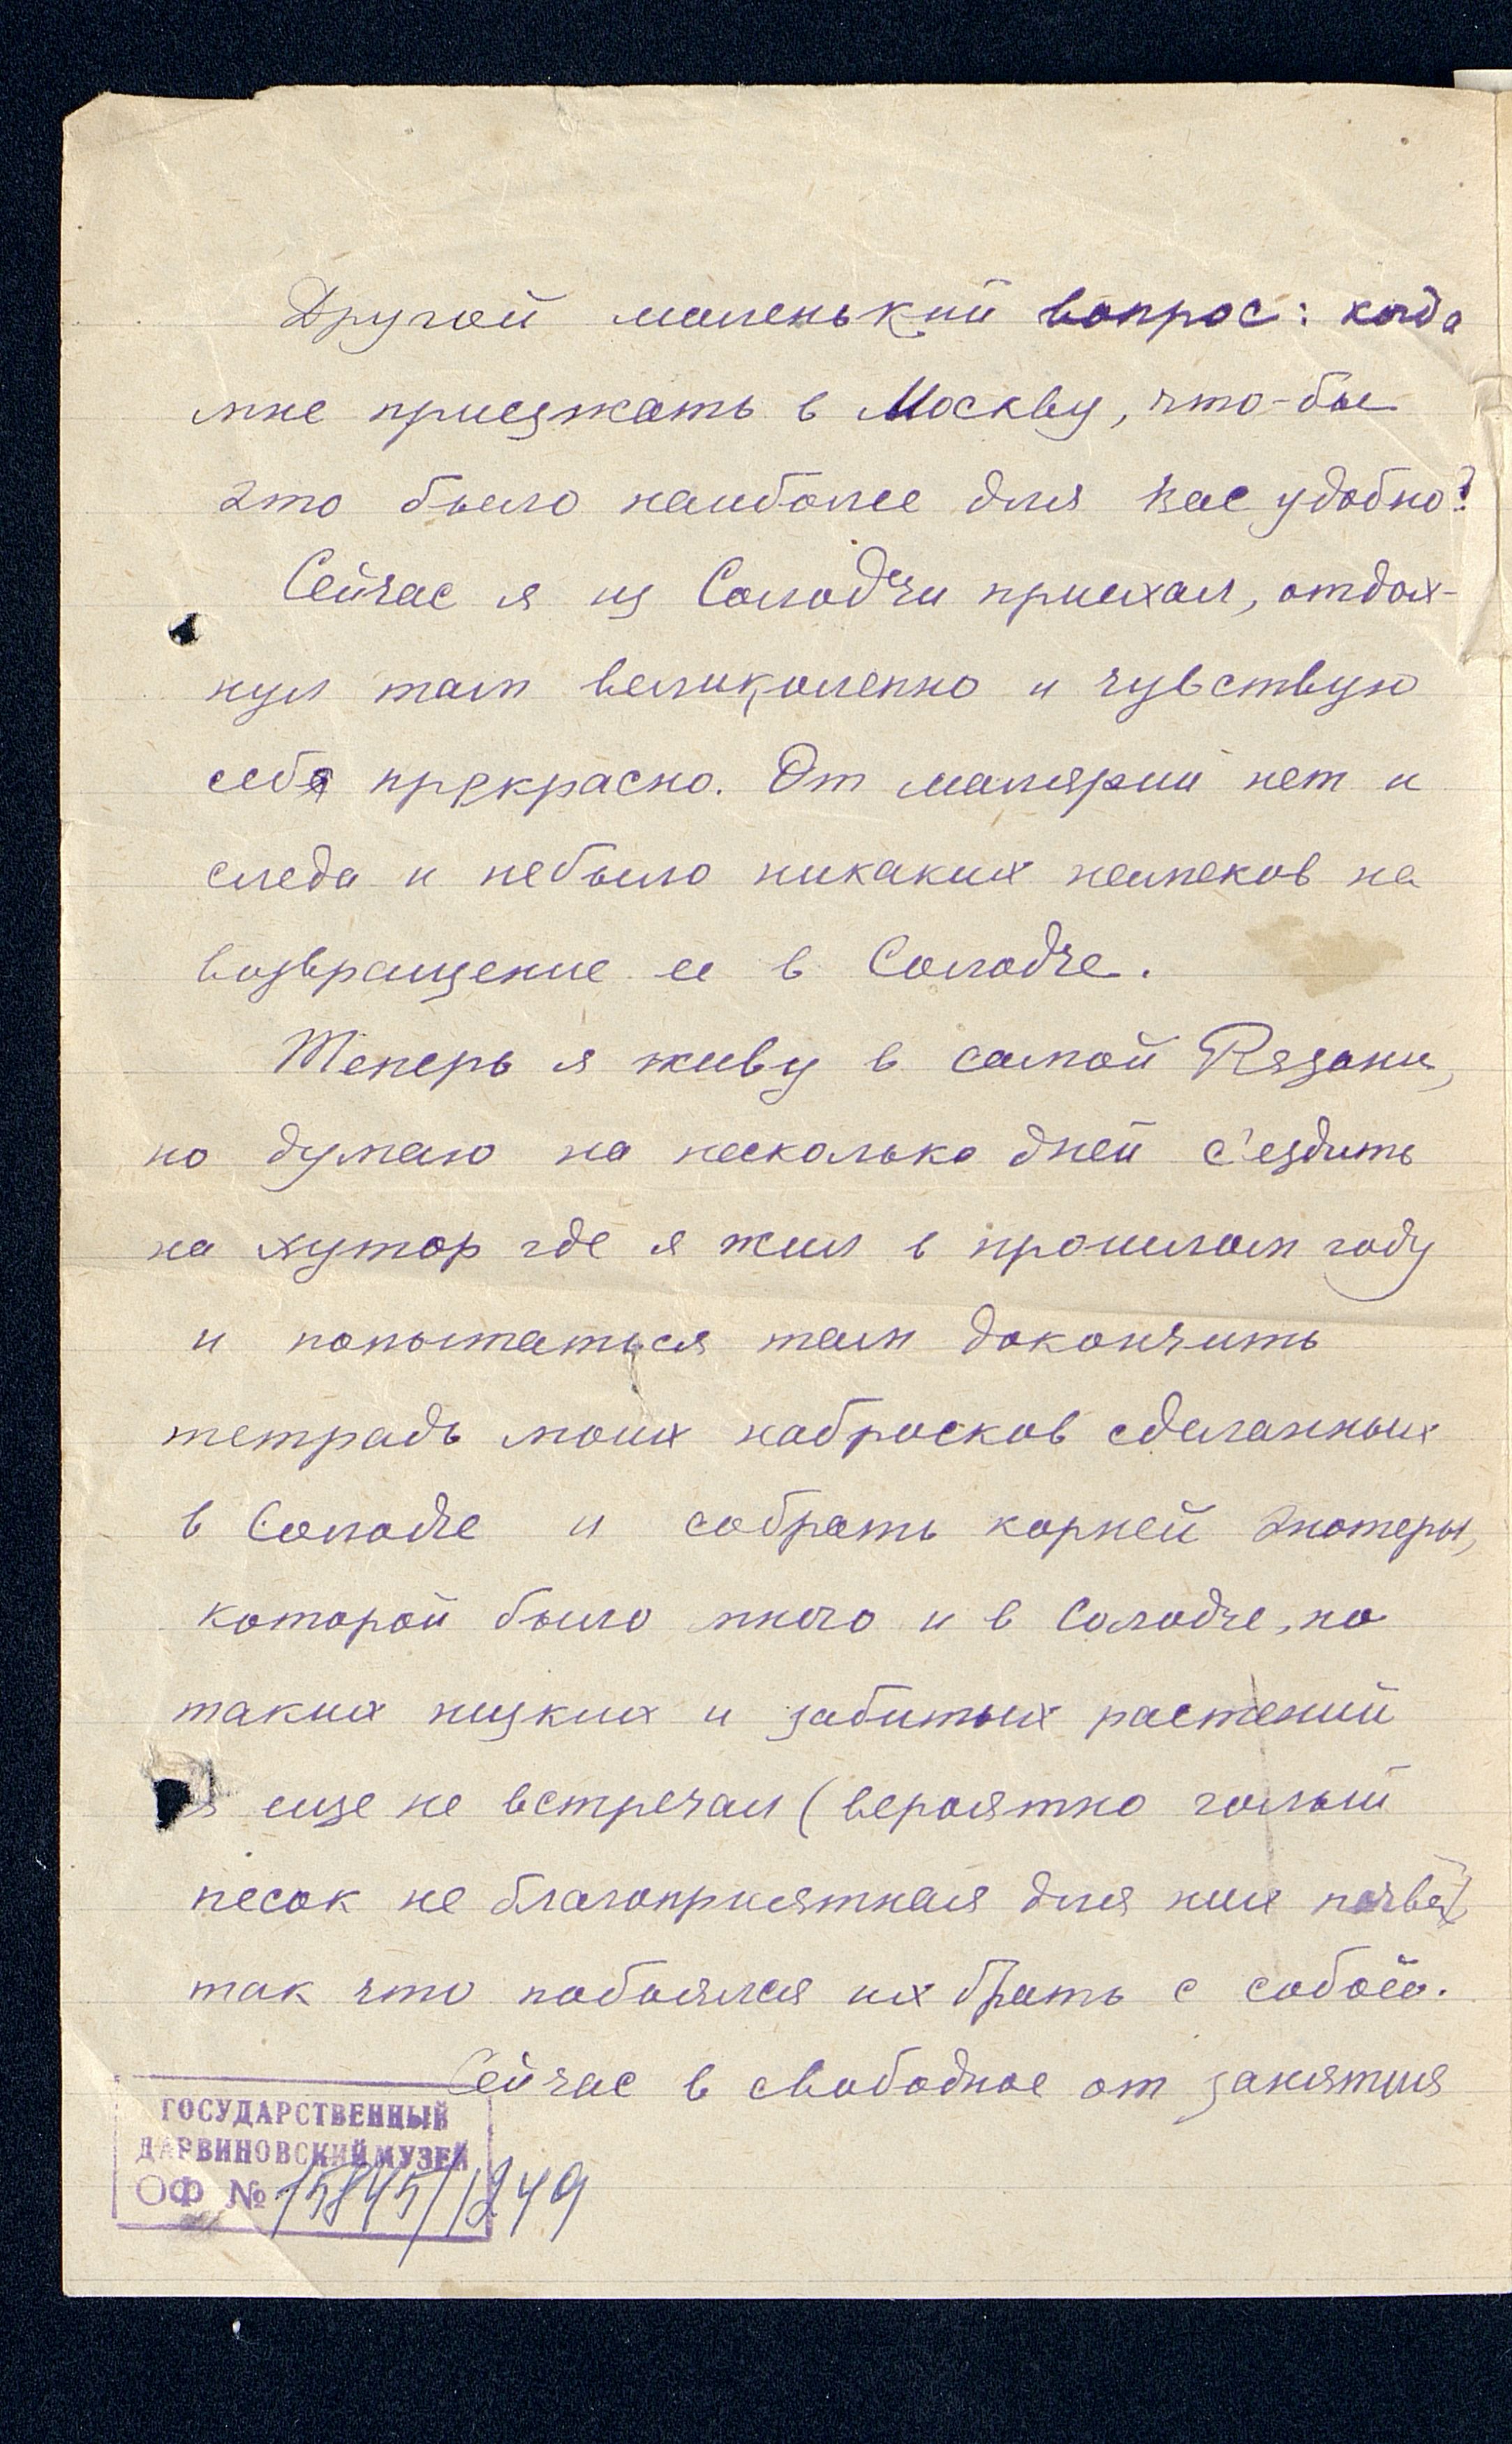 Другой маленький вопрос: когда
мне приезжать в Москву, что-бы
это было наиболее для вас удобно?
Сейчас я из Солодчи приехал, отдох-
нул там великолепно и чувствую
себя прекрасно. От малярии нет и
следа и небыло никаких намеков на
возвращение ее в Солодче.
Теперь я живу в самой Рязани,
но думаю на несколько дней с'ездить
на хутор где я жил в прошлом году
и попытаться там докончить
тетрадь моих набросков сделанных
в Солодче и собрать корней энотеры,
которой было много и в Солодче, но
таких низких и забитых растений
я еще не встречал (вероятно голый
песок не благоприятная для них почва)
так что побоялся их брать с собою.
Сейчас в свободное от занятия
ГОСУДАРСТВЕННЫЙ
ДАРВИНОВСКИЙ МУЗЕЙ
ОФ № 15845/1249